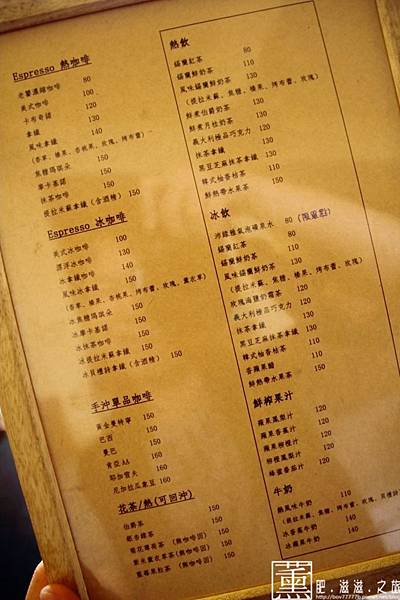 Espresso 熱咖啡
老饕濃縮咖啡 80
美式咖啡 100
卡布奇諾 120
拿鐵 130
風味拿鐵 140
(香草、榛果、杏桃果、玫瑰、烤布蕾)
焦糖瑪琪朵 150
摩卡茶諾 150
抹茶咖啡 150
提拉米蘇拿鐵(含酒精) 150
Espresso 冰咖啡
美式冰咖啡 100
漂浮冰咖啡 130
冰拿鐵咖啡 130
風味冰拿鐵 140
(香草、榛果、杏桃果、烤布蕾、玫瑰、薰衣草)
冰焦糖瑪琪朵 150
冰摩卡茶諾 150
冰抹茶咖啡 150
冰提拉米蘇拿鐵(含酒精) 150
冰貝禮詩拿鐵(含酒精) 150
手沖單品咖啡
黃金曼特寧 150
巴西 150
曼巴 150
肯亞AA 160
耶加雪夫 160
尼加拉瓜象豆 160
花茶/熱(可回沖)
伯爵茶 150
150
150
150
150
熱飲
錫蘭紅茶 80
錫蘭鮮奶茶 110
風味錫蘭鮮奶茶 130
(提拉米蘇、焦糖、榛果、烤布蕾、玫瑰)
鮮煮伯爵奶茶 130
鮮煮月桂奶茶 130
義大利極品巧克力 120
抹茶拿鐵 130
黑豆芝麻抹茶拿鐵 130
韓式柚香桔茶 110
鮮熱帶水果茶 150
冰飲
沛綠雅氣泡礦泉水 80 (限單點)
錫蘭紅茶 80
錫蘭鮮奶茶 110
風味錫蘭鮮奶茶 130
(提拉米蘇、焦糖、榛果、烤布蕾、玫瑰)
玫瑰海鹽奶霜茶 120
義大利極品巧克力 120
抹茶拿鐵 130
黑豆芝麻抹茶拿鐵 130
韓式柚香桔茶 110
香蘋果醋 110
鮮熱帶水果茶 150
鮮榨果汁
蘋果鳳梨汁 120
蘋果香蕉汁 120
蘋果柳橙汁 120
柳橙鳳梨汁 120
蜂蜜番茄汁 120
牛奶
熱風味牛奶 110
(提拉米蘇、焦糖、榛果、烤布蕾、玫瑰、貝禮詩)
冰香蕉牛奶 140
冰蘋果牛奶 140
薰 肥.滋滋.之旅